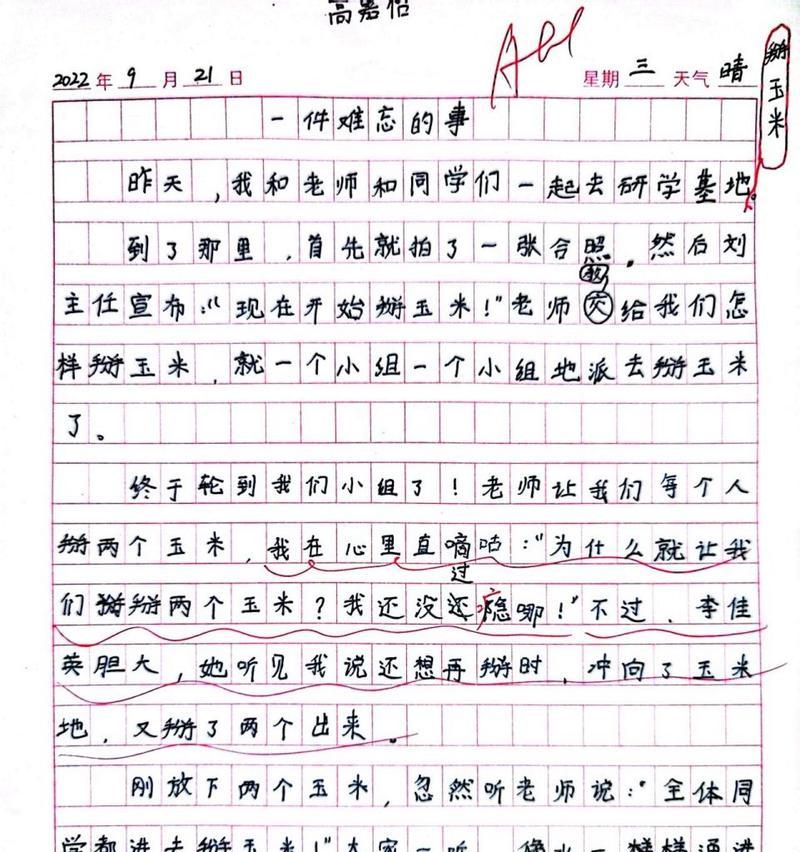 高
2022年9月21日 星期三 天气晴
掰玉米
一件难忘的事
昨天,我和老师和同学们一起去研学基地。
到了那里,首先就拍了一张合照。然后刘
教
主任宣布:“现在开始掰玉米!”老师交给我们怎
样掰玉米,就一个小组一个小组地派去掰玉米
了。
终于轮到我们小组了!老师让我们每个人
掰两个玉米,我在心里直嘀咕:“为什么就让我
过
们掰掰两个玉米?我还没还瘾哪!”不过,李佳
英胆大,她听见我说还想再掰时,冲向了玉米
地,又掰了两个出来。
刚放下两个玉米,忽然听老师说:“全体同
学都进去掰玉米!”大家一听,像水一样